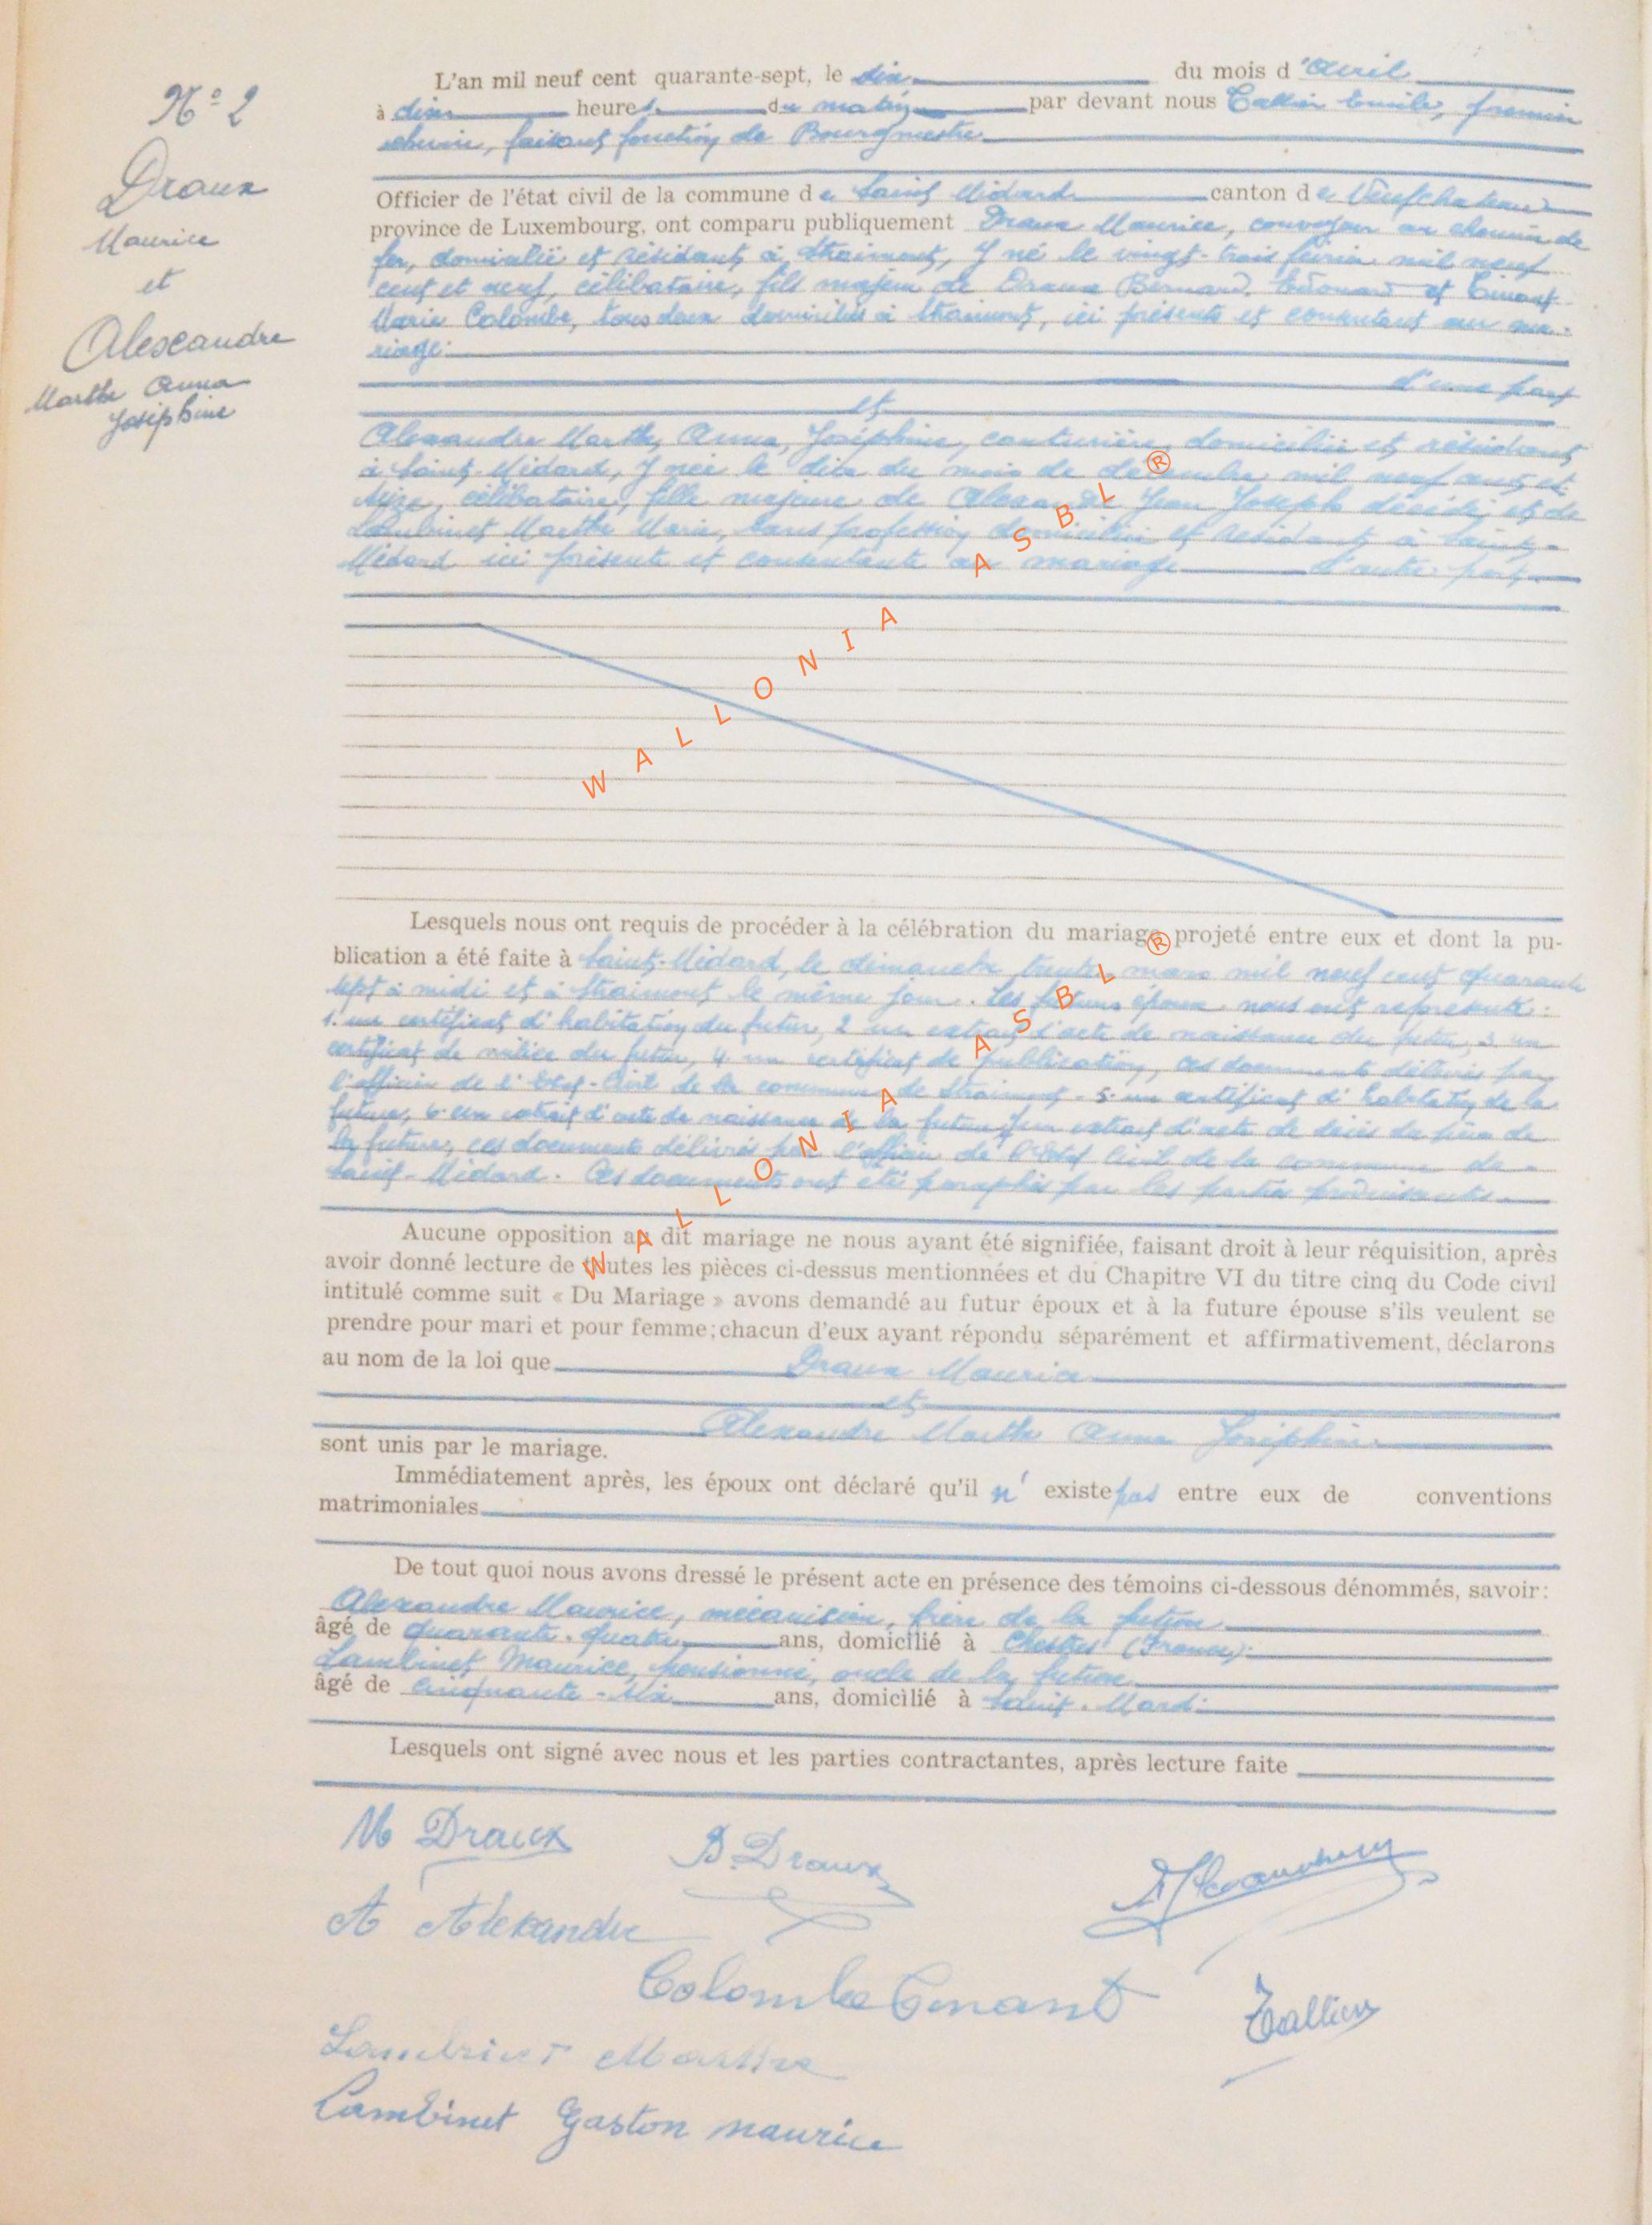 N° 2
Draux
Maurice
et
Alexandre
Marthe Anna
Joséphine
L'an mil neuf cent quarante-sept, le dix du mois d'Avril
à dix heures du matin par devant nous Tallier Emile, premier
échevin, faisant fonction de Bourgmestre
Officier de l'état civil de la commune de Saint Médard canton de Neufchateau
province de Luxembourg, ont comparu publiquement Draux Maurice, convoyeur au chemin de
fer, domicilié et résidant à Straimont, y né le vingt-trois février mil neuf
cent et neuf, célibataire, fils majeur de Draux Bernard Edouard et
Marie Colombe, tous deux domiciliés à Straimont, ici présents et consentant au ma-
riage.
d'une part
et
Alexandre Marthe, Anna, Joséphine, couturière, domiciliée et résidant
à Saint-Médard, y née le dix du mois de décembre mil neuf cent et
célibataire, fille majeure de Alexandre Jean Joseph décédé, et de
Lambinet Marthe Marie, sans profession domiciliée et résidant à Saint-
Médard ici présente et consentante au mariage d'autre part
Lesquels nous ont requis de procéder à la célébration du mariage projeté entre eux et dont la pu-
blication a été faite à Saint-Médard, le dimanche trente mars mil neuf cent quarante
sept à midi et à Straimont le même jour. Les futurs époux nous ont représenté :
1. un certificat d'habitation du futur, 2 un extrait d'acte de naissance du futur, 3 un
certificat de milice du futur, 4 un certificat de publication, ces documents délivrés par
l'officier de l'Etat-Civil de la commune de Straimont. 5. un certificat d'habitation de la
future, 6. un extrait d'acte de naissance de la future, 7 un extrait d'acte de décès du père de
la future, ces documents délivrés par l'officier de l'Etat Civil de la commune de
Saint-Médard. Ces documents ont été paraphés par les parties produisantes.
Aucune opposition au dit mariage ne nous ayant été signifiée, faisant droit à leur réquisition, après
avoir donné lecture de toutes les pièces ci-dessus mentionnées et du Chapitre VI du titre cinq du Code civil
intitulé comme suit « Du Mariage » avons demandé au futur époux et à la future épouse s'ils veulent se
prendre pour mari et pour femme; chacun d'eux ayant répondu séparément et affirmativement, déclarons
au nom de la loi que Draux Maurice
et
Alexandre Marthe Anna Joséphine
sont unis par le mariage.
Immédiatement après, les époux ont déclaré qu'il n'existe pas entre eux de conventions
matrimoniales
De tout quoi nous avons dressé le présent acte en présence des témoins ci-dessous dénommés, savoir:
Alexandre Maurice, mécanicien, frère de la future
âgé de quarante-quatre ans, domicilié à (France)
Lambinet Maurice, pensionné, oncle de la future
âgé de cinquante-six ans, domicilié à Saint-Mard
Lesquels ont signé avec nous et les parties contractantes, après lecture faite
M Draux
B. Draux
A Alexandre
Colombe
Tallier
Lambinet Marthe
Lambinet Gaston Maurice
WALLONIA ASBL ®
WALLONIA ASBL ®